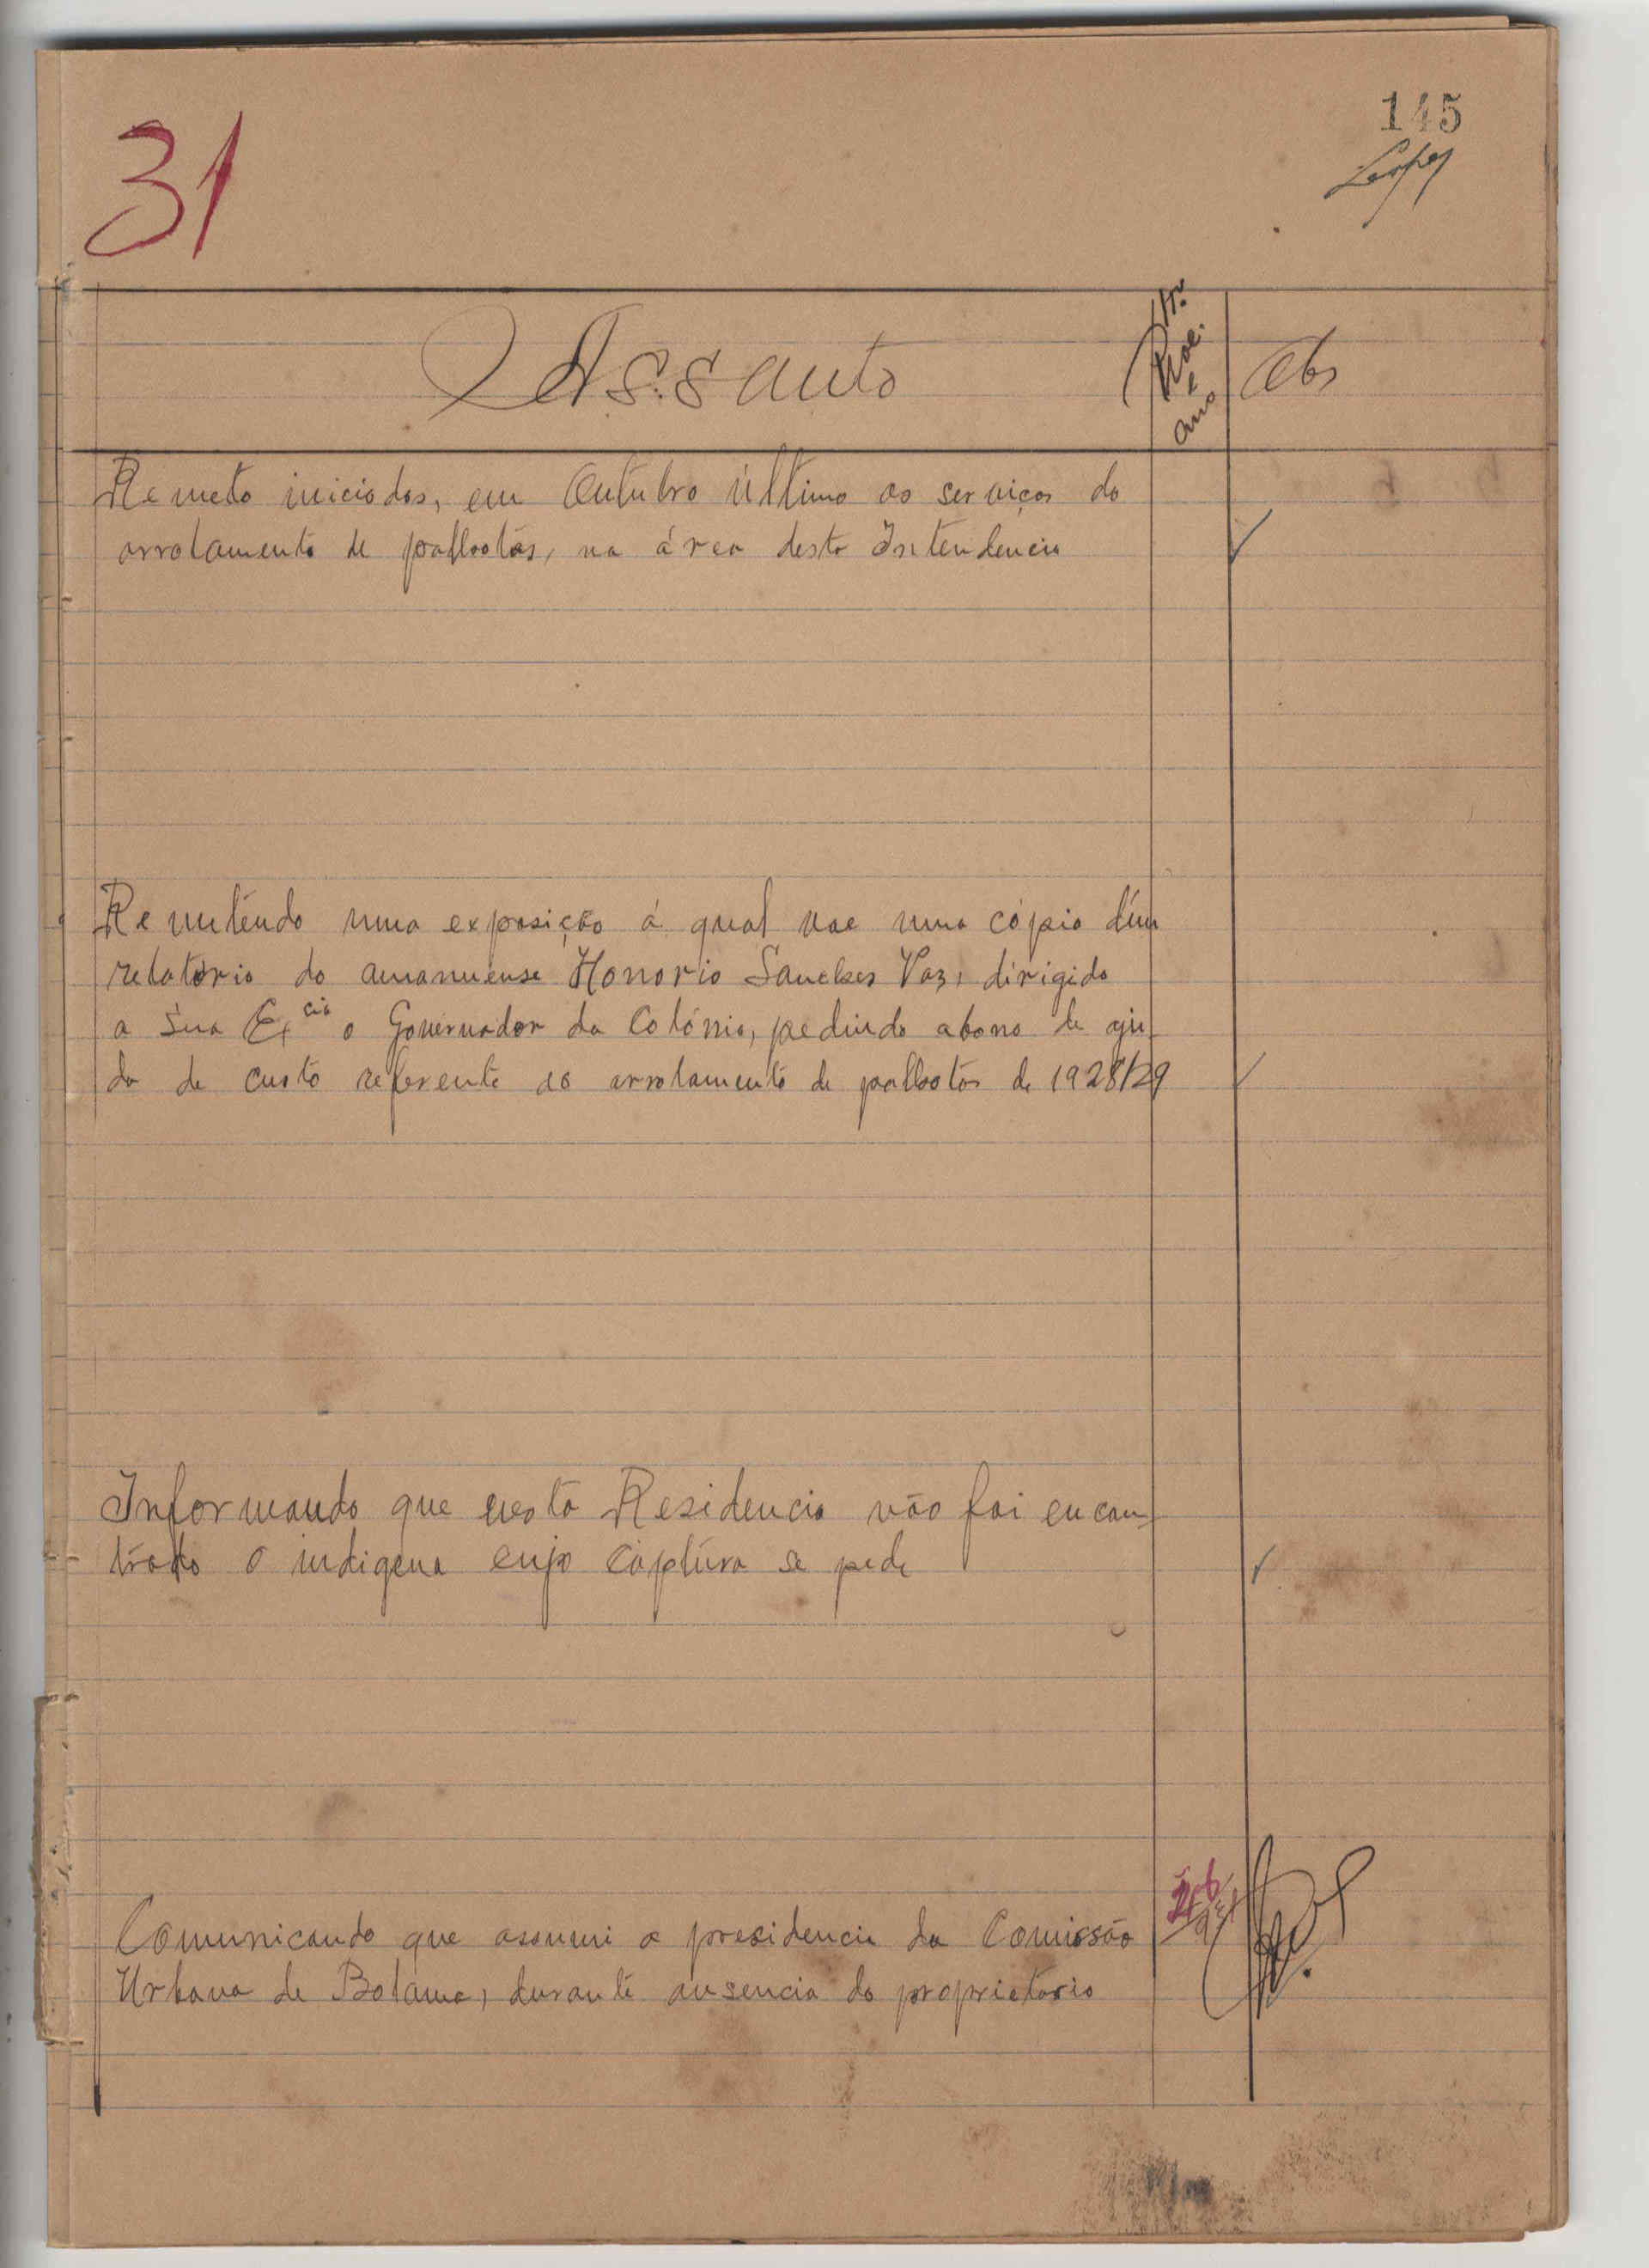 31
145
Lopes
Assunto
Nº
Proc.
e
ano
Obs
Remeto iniciados, em Outubro último os serviços do
arrolamento de palhotas, na área desta Intendencia
Remetendo uma exposição á qual vae uma cópia dum
relatório do amanuense Honorio Sanches Vaz, dirigido
a Sua Ex.cia o Governador da Colónia, pedindo abono de aju-
da de custo referente ao arrolamento de palhotas de 1928/29
Informando que nesta Residencia não foi encon-
trado o indigena cuja captura se pede
Comunicando que assumi a presidencia da Comissão
Urbana de Bolama, durante ausencia do proprietário